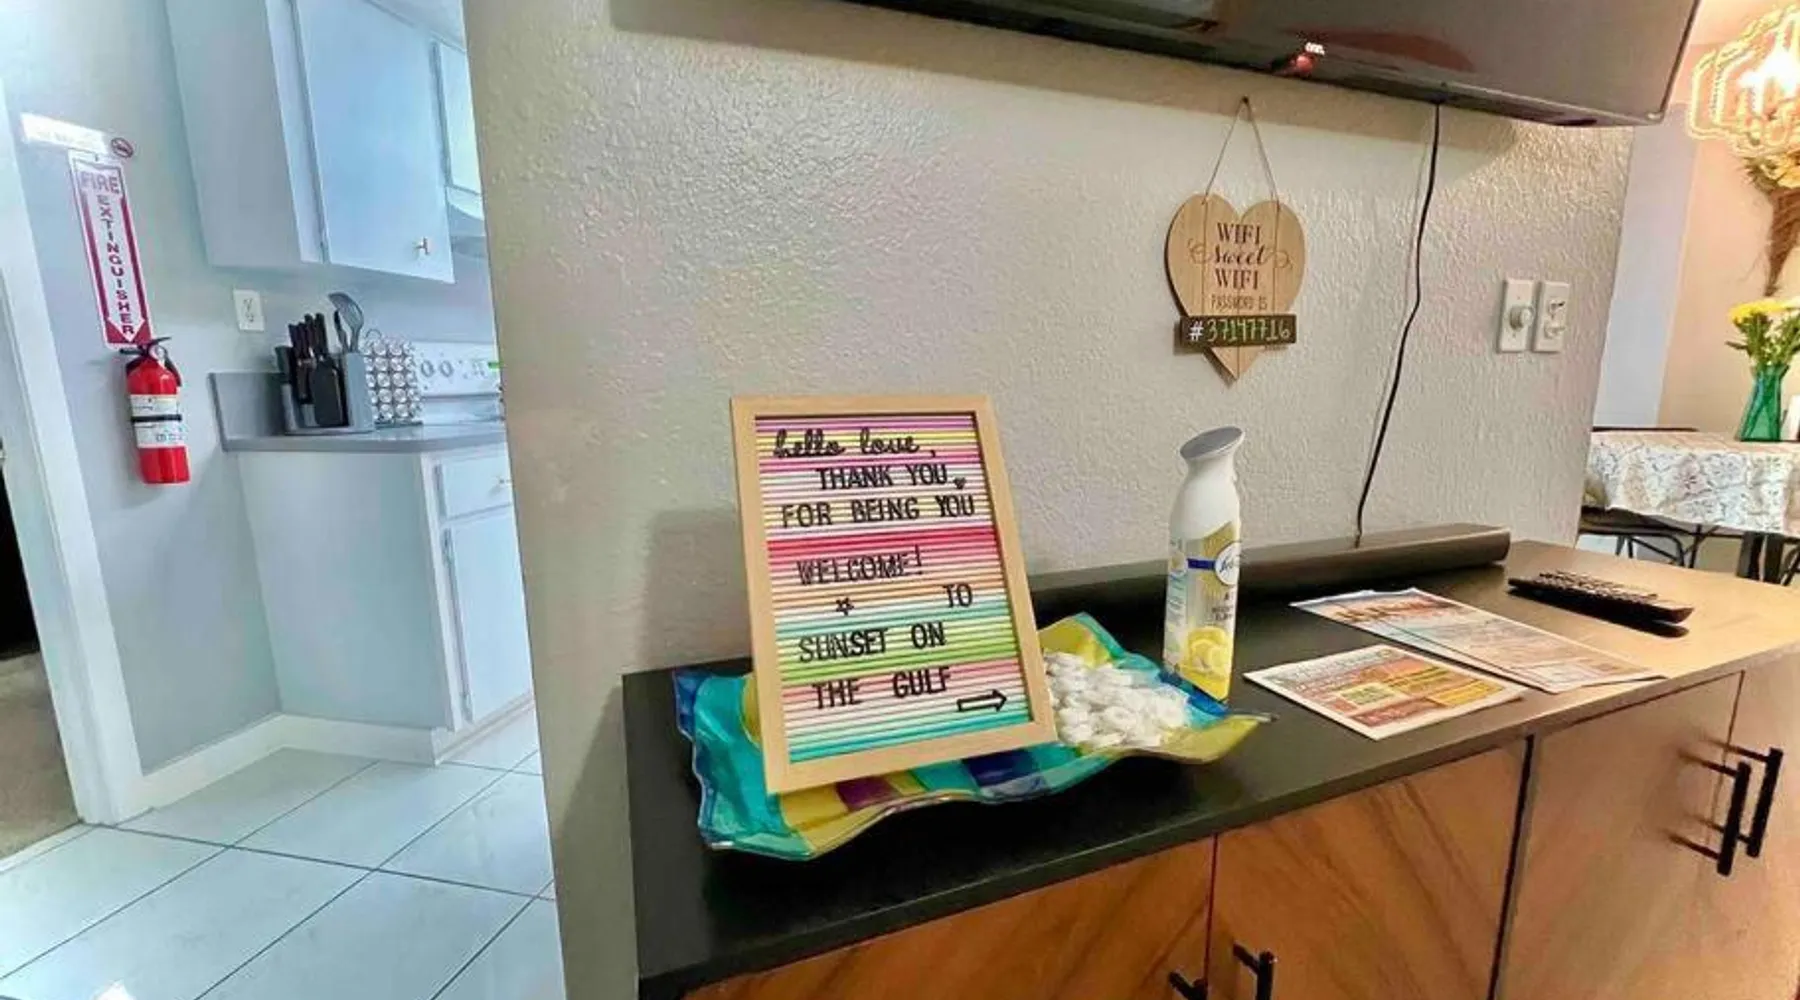 FIRE EXTINGUISHER
WIFI
Sweet
WIFI
PASSWORD IS
#37147716
hello love,
THANK YOU
FOR BEING YOU
WELCOME!
TO
SUNSET ON
THE GULF